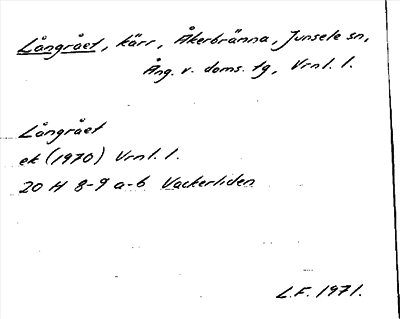 Långrået, kärr, Åkerbränna, Junsele sn,
Ång. v. doms. tg, Vrnl. 1.
Långrået
ek (1970) Vrnl. 1.
20 H 8-9 a-b Vackerliden
L.F. 1971.